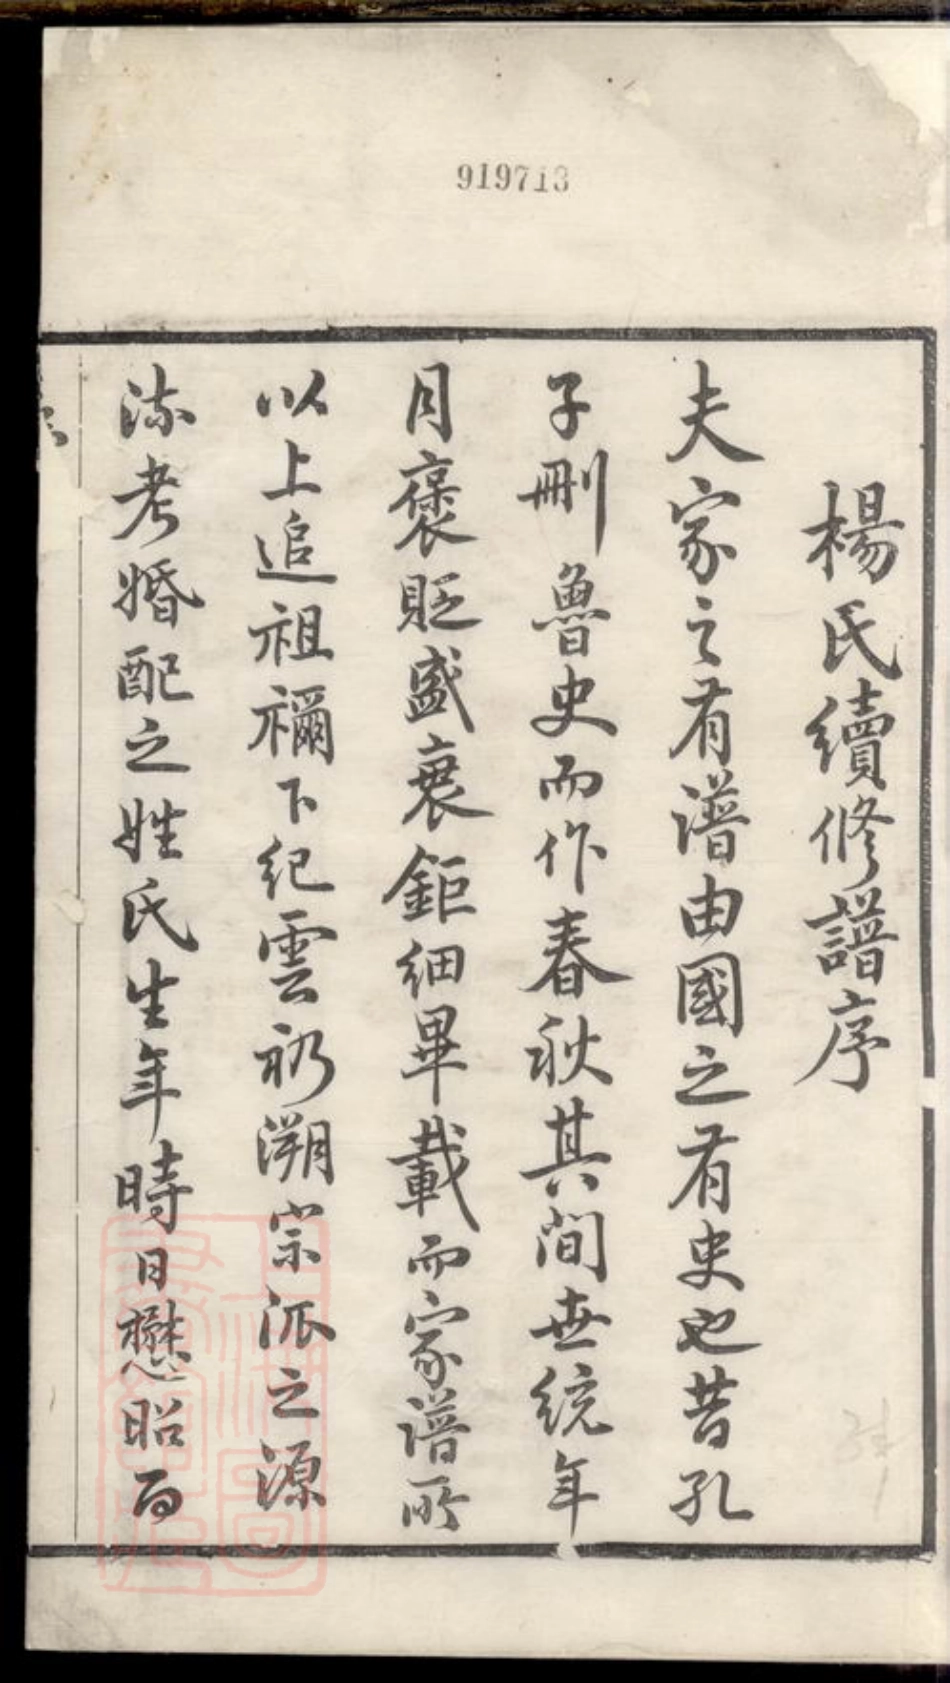 919713
楊氏續修譜序
夫家之有譜由國之有史也昔孔
子刪魯史而作春秋其間世統年
月褒貶盛衰鉅細畢載而家譜所
以上追祖禰下紀雲礽溯宗派之源
流考婚配之姓氏生年時日懋昭而
上海圖書館藏